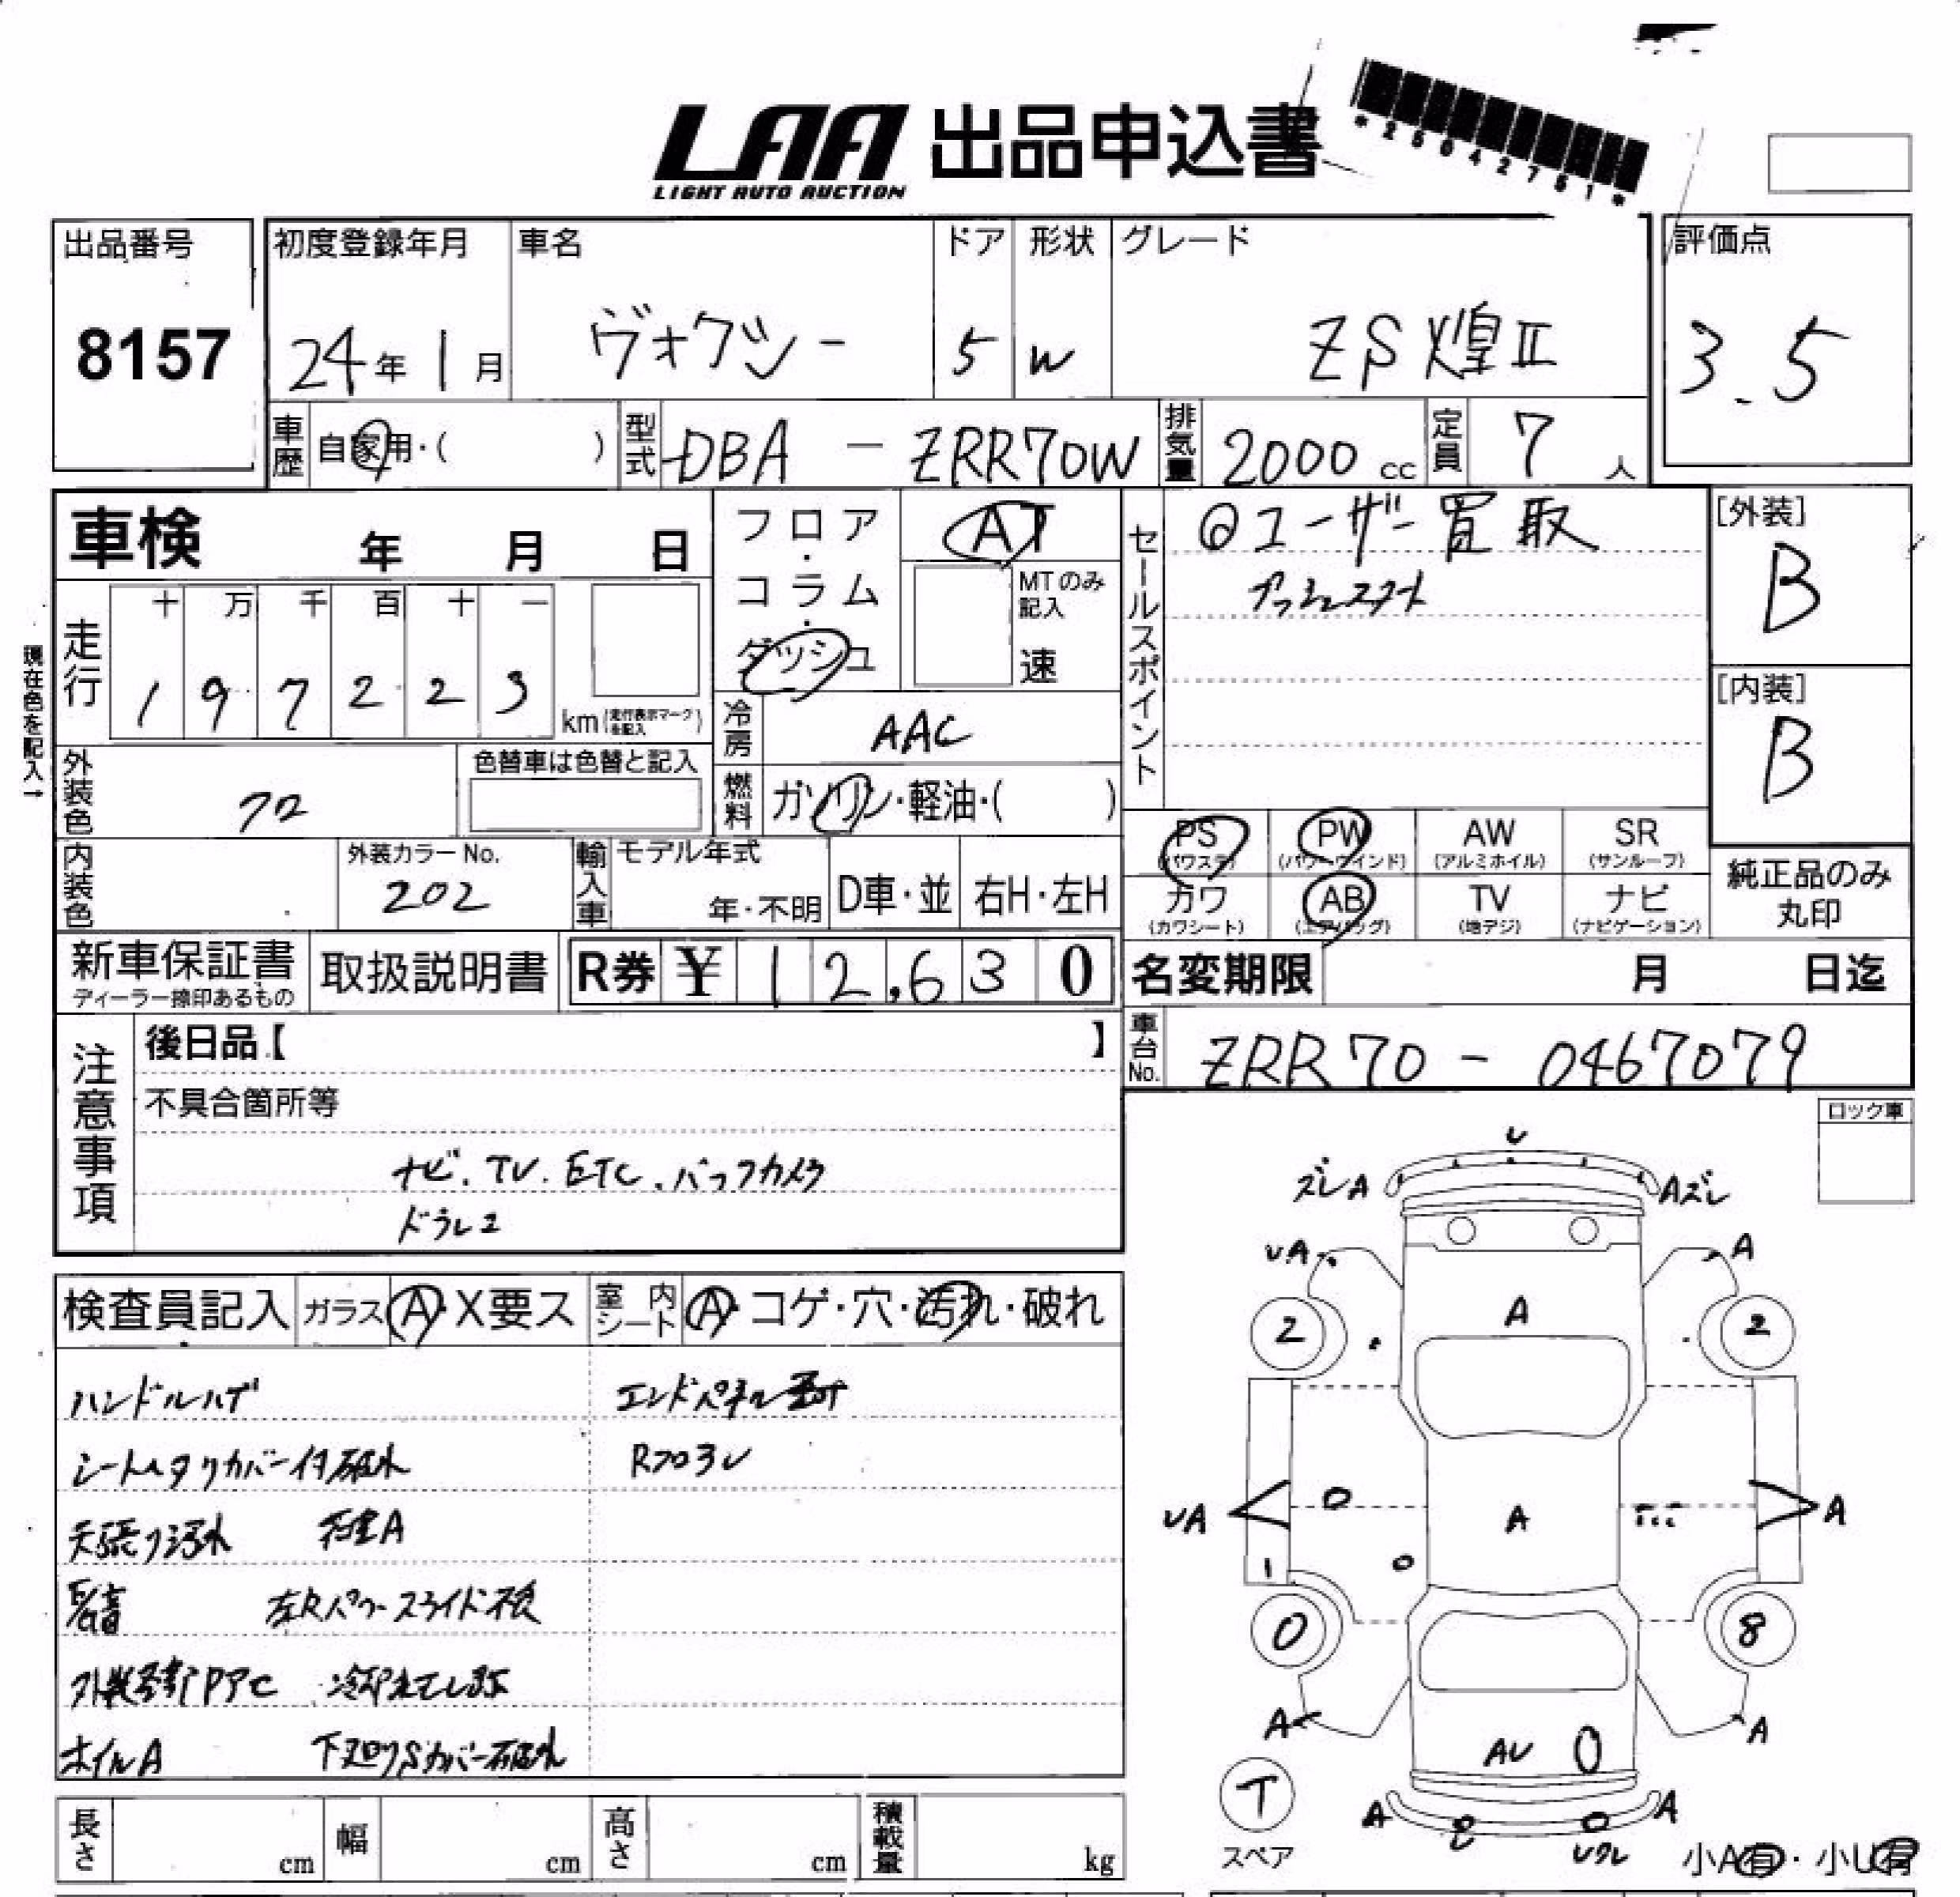 LAA 出品申込書
LIGHT AUTO AUCTION
*25042751*
出品番号
8157
初度登録年月
24年1月
車名
ヴォクシー
ドア
5
形状
W
グレード
ZS煌II
評価点
3.5
車歴
自家用・( )
型式
DBA - ZRR70W
排気量
2000 cc
定員
7人
車検 年 月 日
走行
十 万 千 百 十 一
1 9 7 2 2 3 km (走行表示マークを記入)
現在色を記入→
フロア・コラム・ダッシュ
AT
MTのみ記入
速
冷房
AAC
燃料
ガソリン・軽油・( )
外装色
クロ
色替車は色替と記入
内装色
外装カラーNo.
202
輸入車
モデル年式
年・不明
D車・並
右H・左H
セールスポイント
◎ユーザー買取
プッシュスタート
[外装]
B
[内装]
B
PS (パワステ)
PW (パワーウインド)
AW (アルミホイル)
SR (サンルーフ)
カワ (カワシート)
AB (エアバッグ)
TV (地デジ)
ナビ (ナビゲーション)
純正品のみ丸印
新車保証書
ディーラー捺印あるもの
取扱説明書
R券 ¥12,630
名変期限 月 日迄
車台No.
ZRR70 - 0467079
注意事項
後日品【 】
不具合箇所等
ナビ.TV.ETC.バックカメラ
ドラレコ
ロック車
検査員記入
ガラス A・X要ス
室内シート A・コゲ・穴・汚れ・破れ
ハンドルハゲ
シートヘタリカバー付破れ
天張り汚れ 荷室A
左Rパワースライド不良
ホイルA 下廻りSカバー破れ
エンドパネル
Rフロアレ
U
ズレA
Aズレ
UA
A
2
A
2
UA
A
A
1
0
8
A
AU
A
T
スペア
A
A
Uワレ
小A有・小U有
長さ cm
幅 cm
高さ cm
積載量 kg